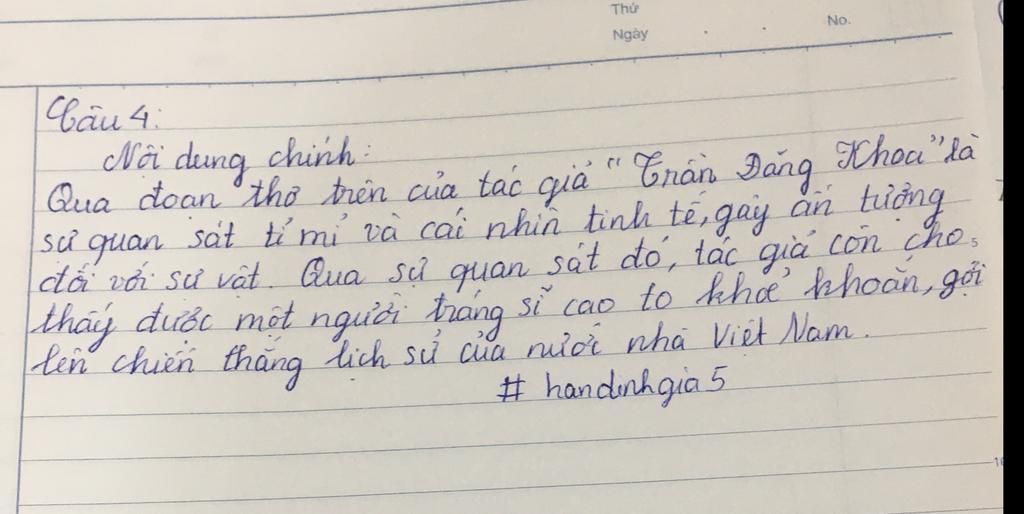 Thứ
Ngày
No.
Câu 4:
Nội dung chính:
Qua đoạn thơ trên của tác giả "Trần Đăng Khoa" là
sự quan sát tỉ mỉ và cái nhìn tinh tế, gây ấn tượng
đối với sự vật. Qua sự quan sát đó, tác giả còn cho
thấy được một người tráng sĩ cao to khoẻ khoắn, gợi
lên chiến thắng lịch sử của nước nhà Việt Nam.
# handinhgia5